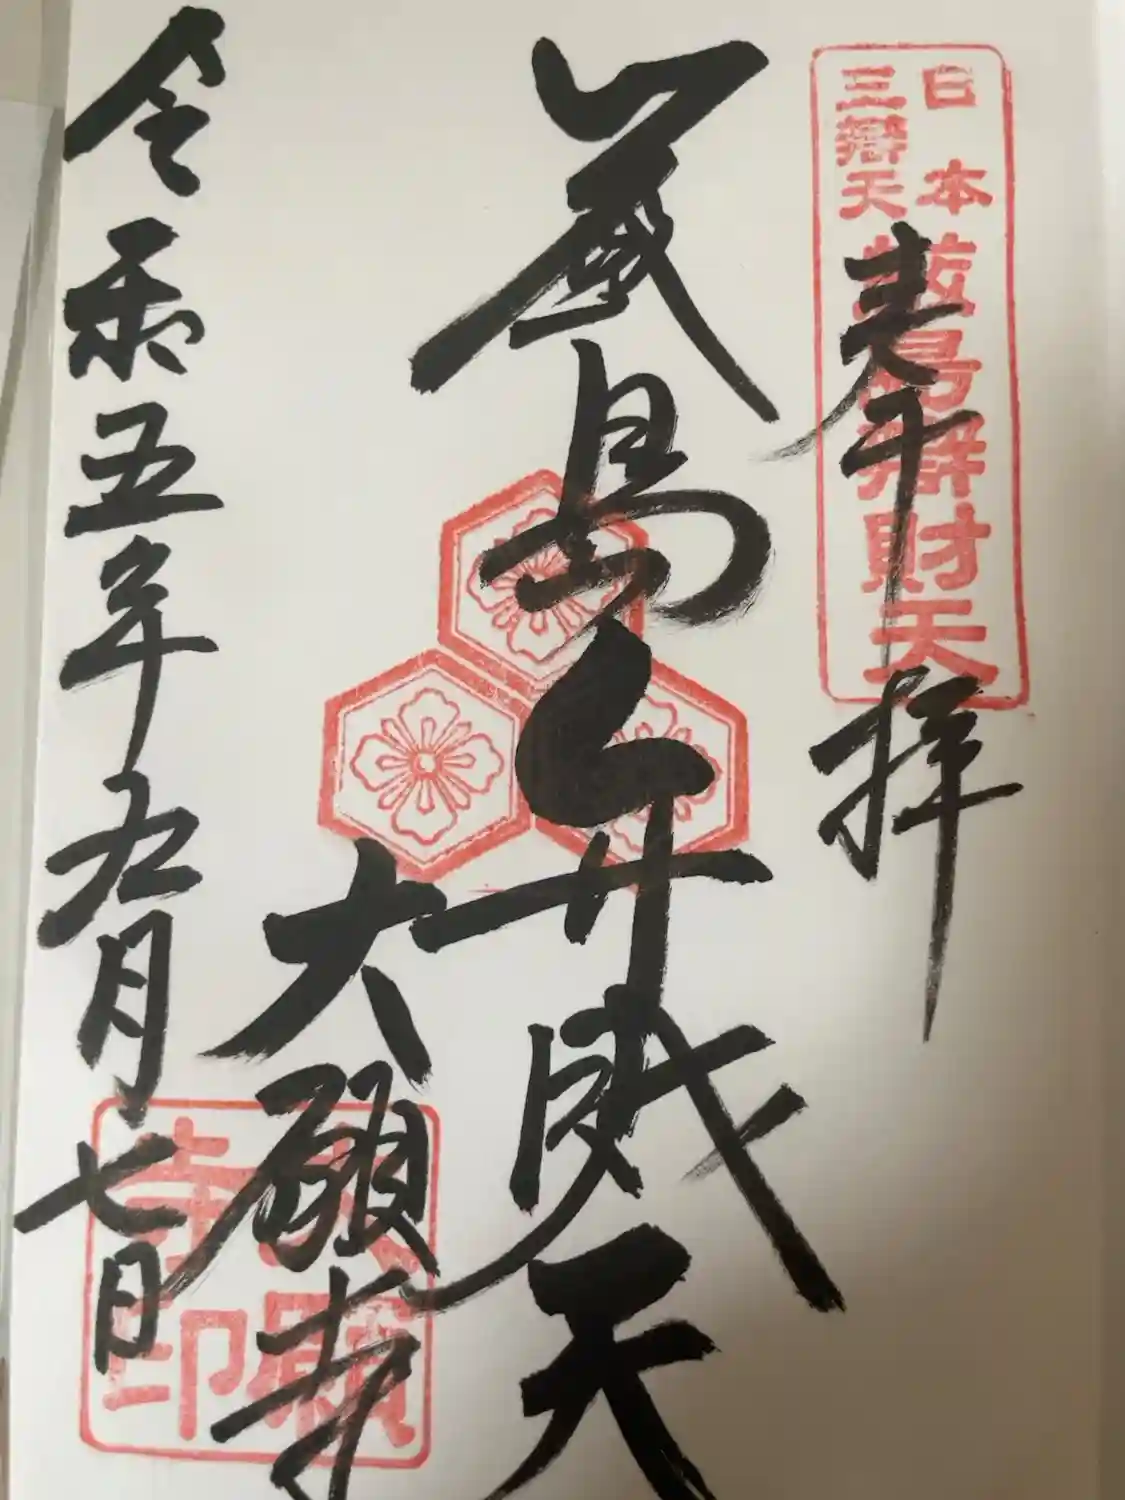 奉拝
日本
三辯天
厳島辯財天
厳島弁財天
大願寺
大願寺印
令和五年九月七日